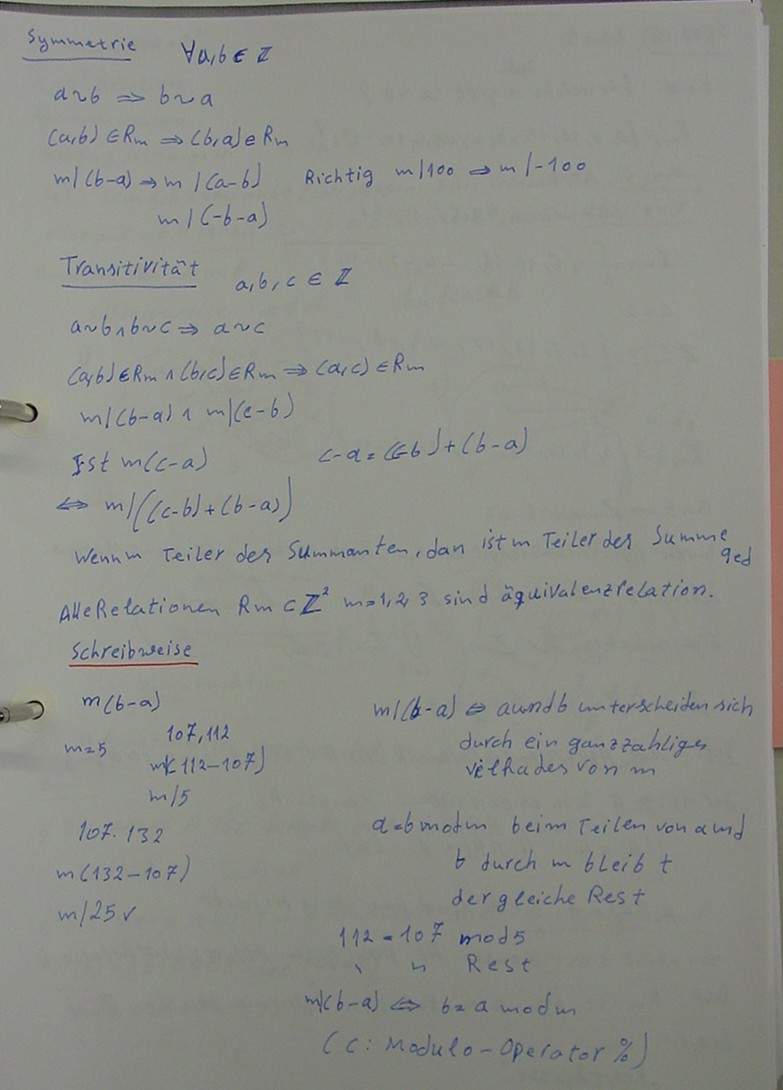 Symmetrie ∀a,b ∈ ℤ
a~b ⇒ b~a
(a,b) ∈ Rm ⇒ (b,a) ∈ Rm
m/(b-a) ⇒ m/(a-b) Richtig m/100 ⇒ m/-100
m/(-b-a)
Transitivität a,b,c ∈ ℤ
a~b ∧ b~c ⇒ a~c
(a,b) ∈ Rm ∧ (b,c) ∈ Rm ⇒ (a,c) ∈ Rm
m/(b-a) ∧ m/(c-b)
Ist m(c-a) c-a = (c-b) + (b-a)
⇔ m/((c-b)+(b-a))
Wenn m Teiler der Summanten, dan ist m Teiler der Summe
qed
Alle Relationen Rm ⊂ ℤ² m=1,2,3 sind äquivalenzrelation.
Schreibweise
m(b-a)
m=5 107,112
m(112-107)
m/5
107. 132
m(132-107)
m/25 ✓
m/(b-a) ⇔ a und b unterscheiden sich
durch ein ganzzahliges
von m
a=b mod m beim Teilen von a und
b durch m bleibt
der gleiche Rest
112 = 107 mod 5
" " Rest
m(b-a) ⇔ b = a mod m
(C: Modulo-Operator %)